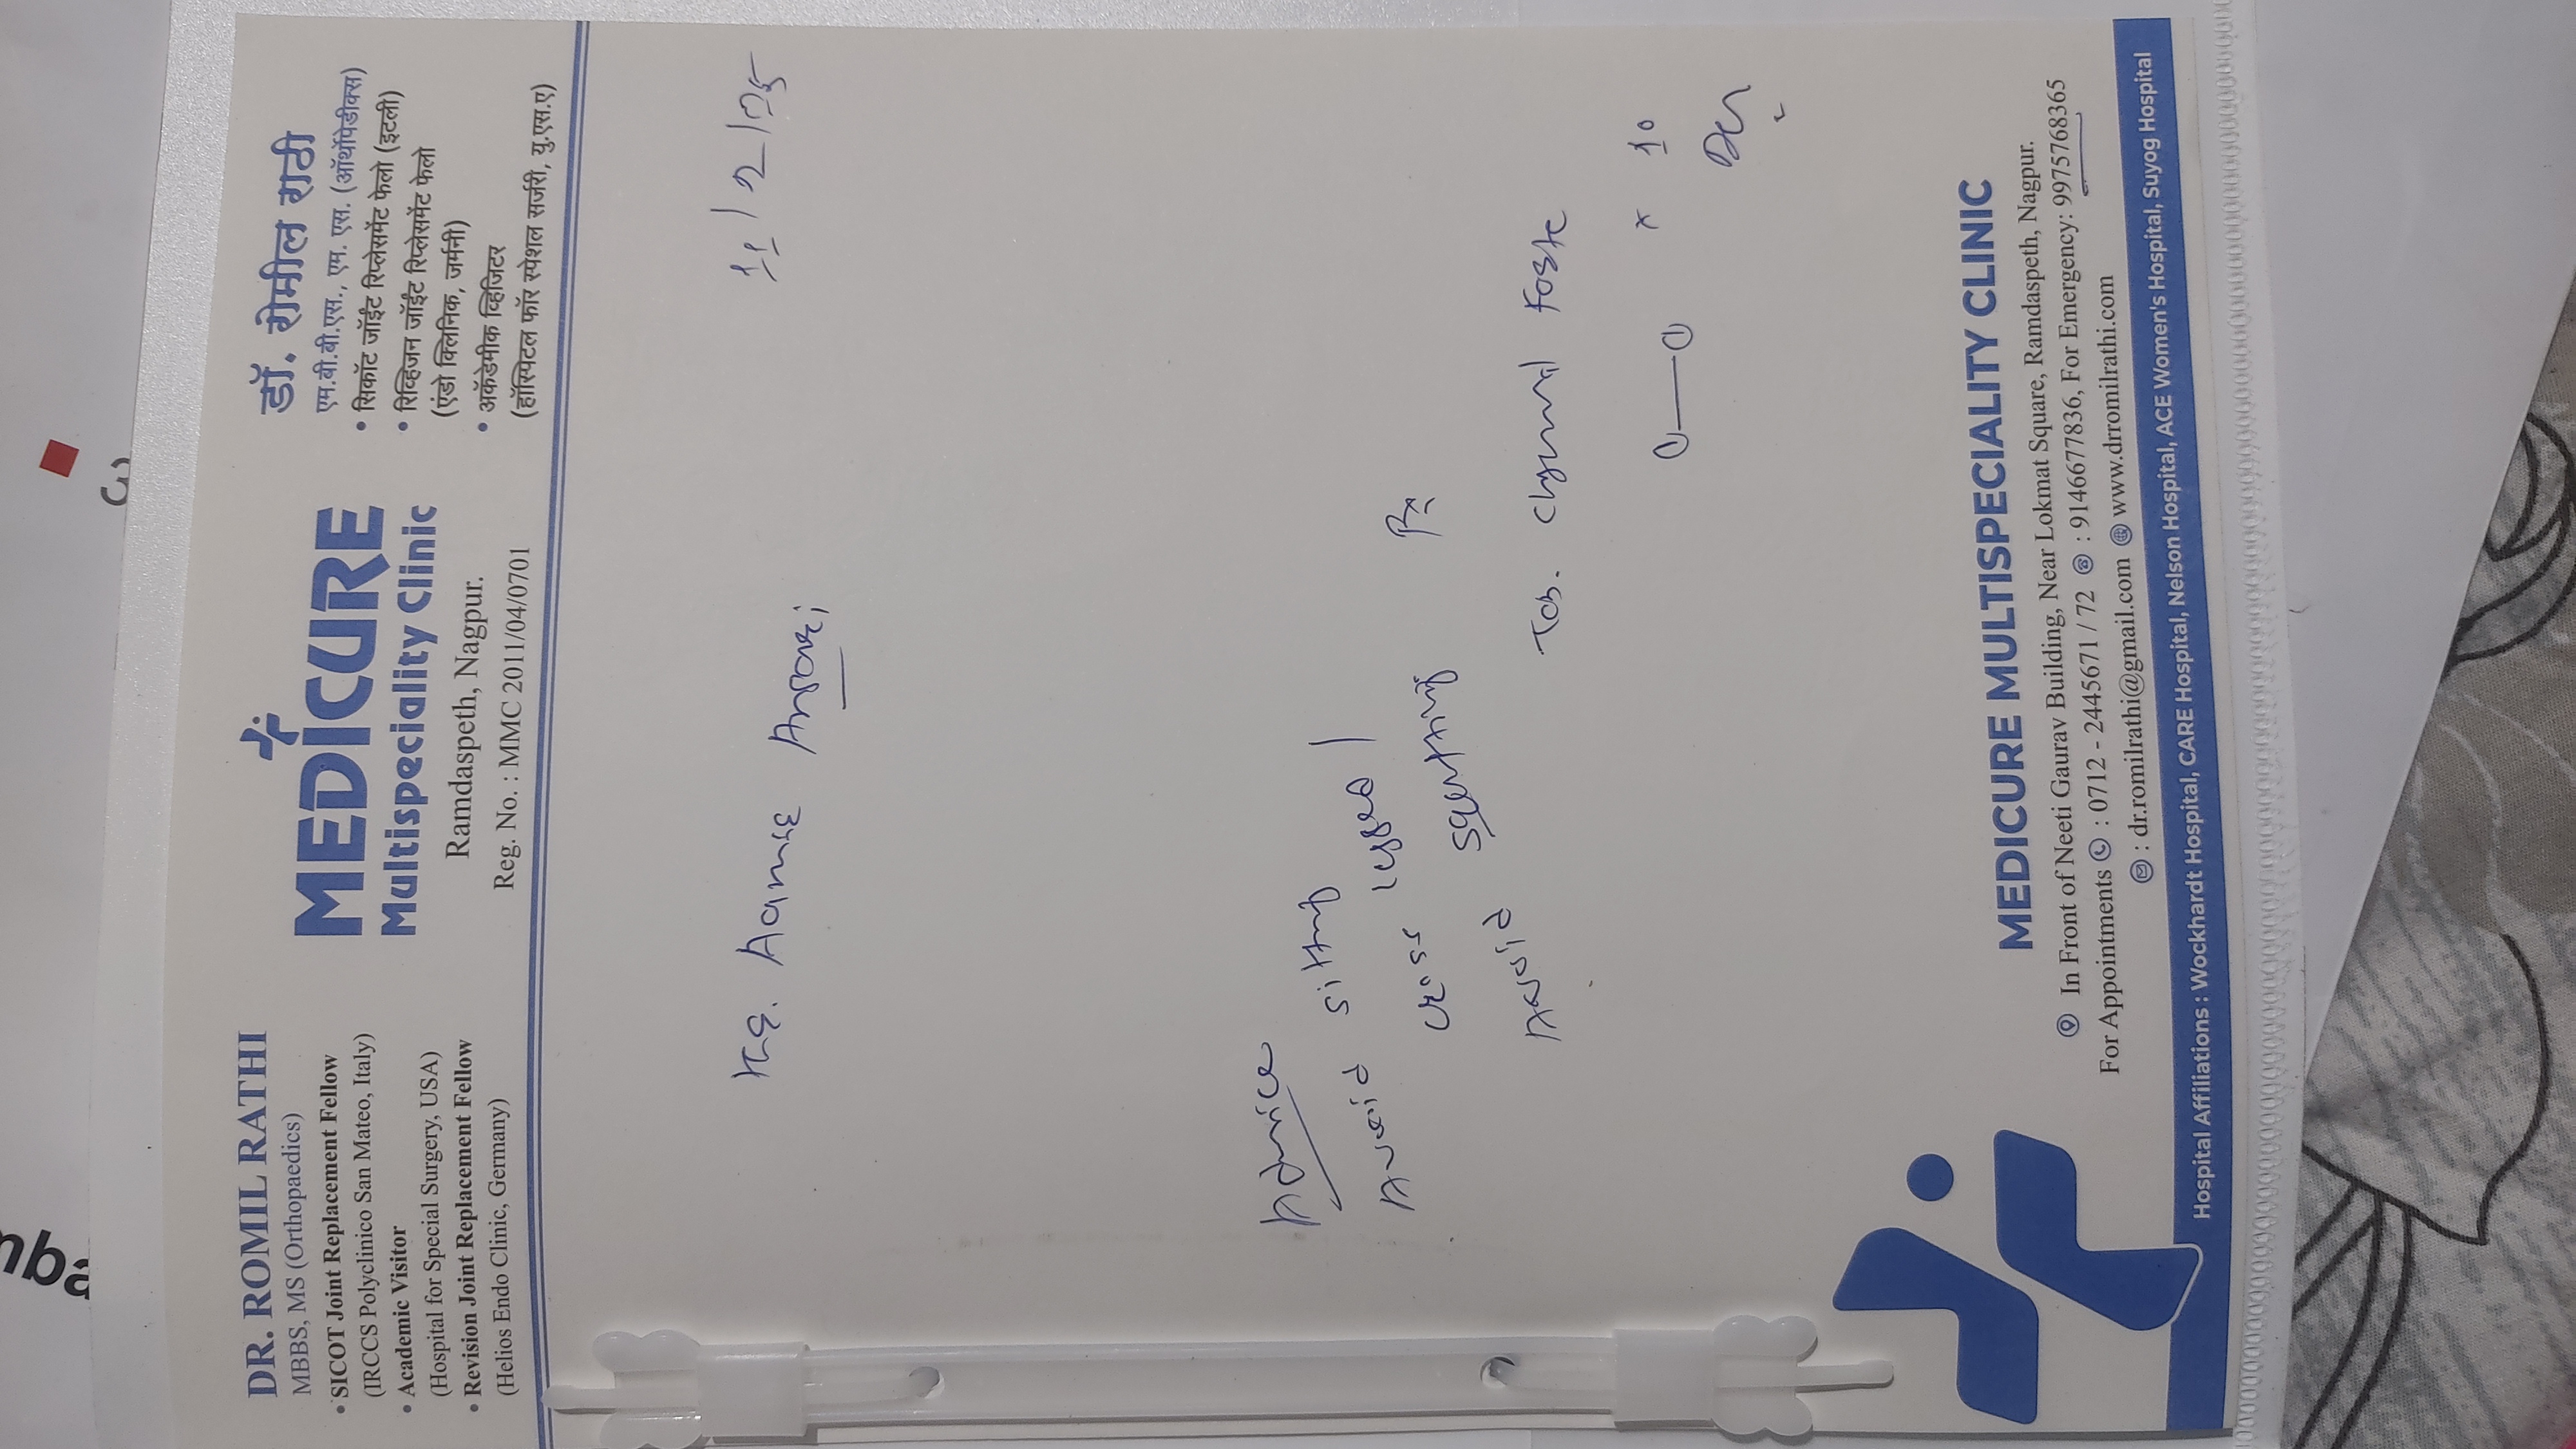 DR. ROMIL RATHI
MBBS, MS (Orthopaedics)
• SICOT Joint Replacement Fellow
(IRCCS Polyclinico San Mateo, Italy)
• Academic Visitor
(Hospital for Special Surgery, USA)
• Revision Joint Replacement Fellow
(Helios Endo Clinic, Germany)
MEDICURE
Multispeciality Clinic
Ramdaspeth, Nagpur.
Reg. No. : MMC 2011/04/0701
डॉ. रोमील राठी
एम.बी.बी.एस., एम. एस. (ऑर्थोपेडीक्स)
• सिकॉट जॉईंट रिप्लेसमेंट फेलो (इटली)
• रिव्हिजन जॉईंट रिप्लेसमेंट फेलो
(एंडो क्लिनिक, जर्मनी)
• अकॅडेमीक व्हिजिटर
(हॉस्पिटल फॉर स्पेशल सर्जरी, यु.एस.ए)
Aamir Ansari
11/2/25
Advice
Avoid sitting
cross legged /
Avoid squatting
Rx
Tab. Forte
1—1 x 10
MEDICURE MULTISPECIALITY CLINIC
In Front of Neeti Gaurav Building, Near Lokmat Square, Ramdaspeth, Nagpur.
For Appointments : 0712 - 2445671 / 72 : 9146677836, For Emergency: 9975768365
: dr.romilrathi@gmail.com www.drromilrathi.com
Hospital Affiliations : Wockhardt Hospital, CARE Hospital, Nelson Hospital, ACE Women's Hospital, Suyog Hospital